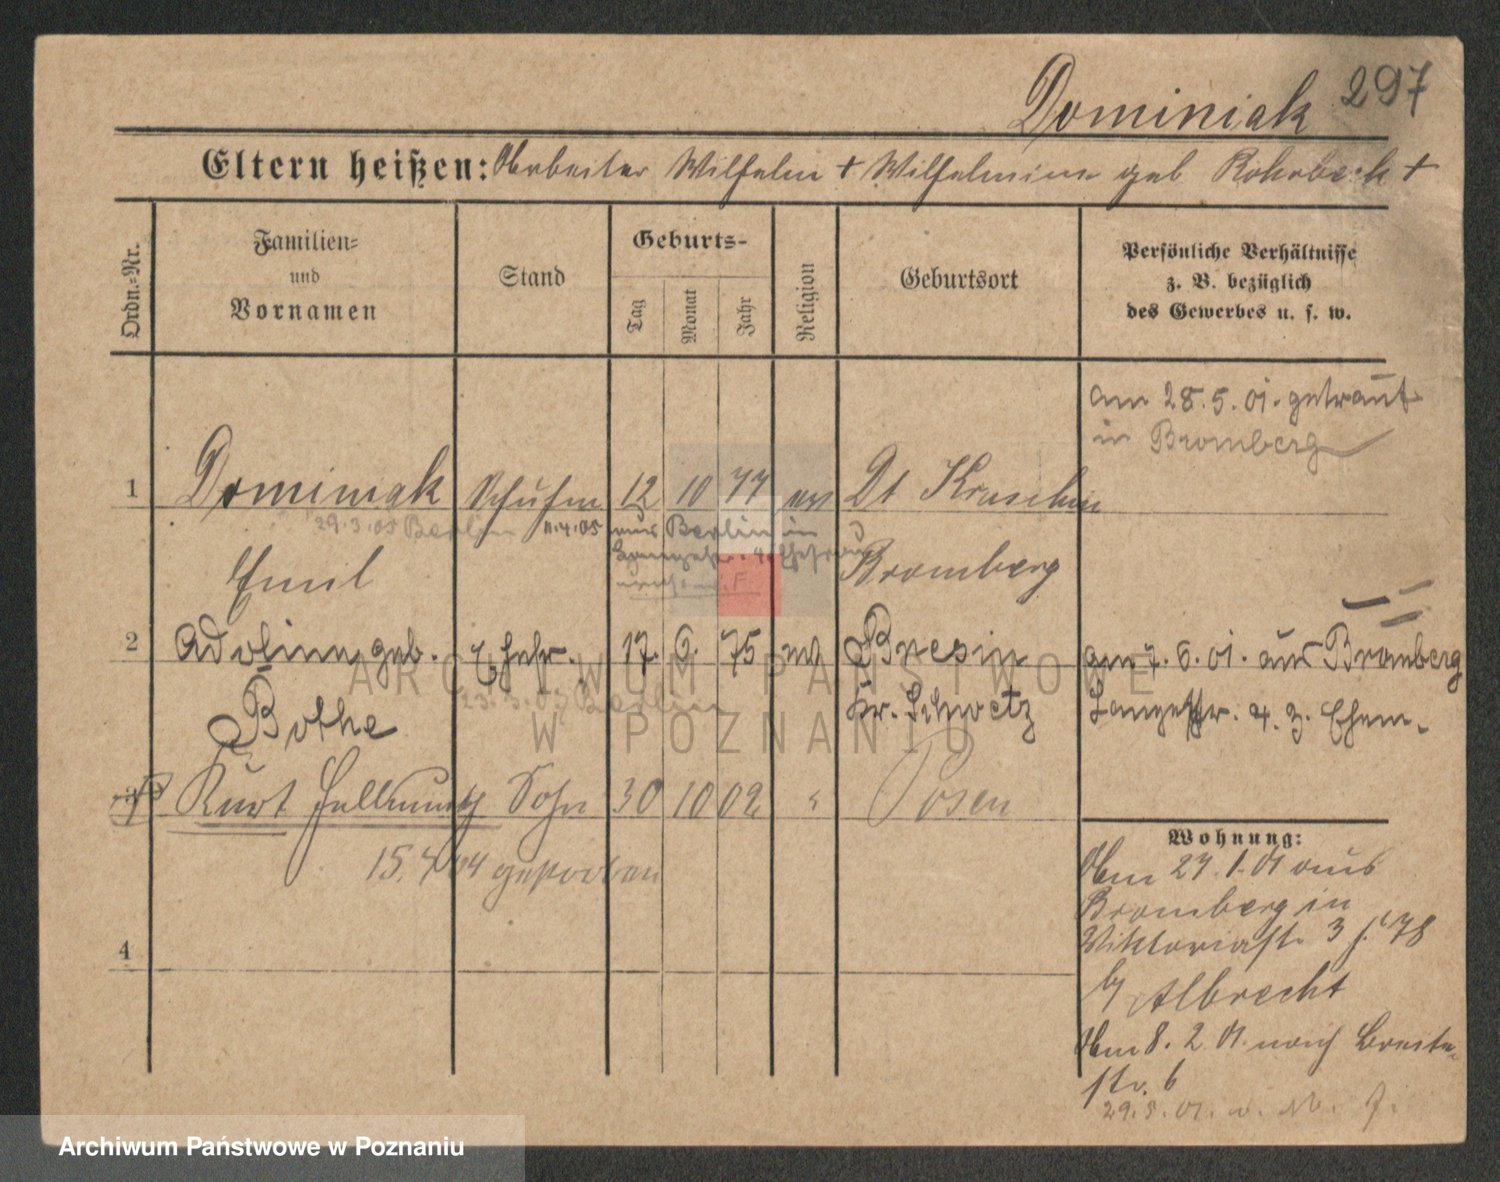 Dominiak 297
Eltern heißen: Arbeiter Wilhelm + Wilhelmine geb Rohrbeck +
Ordn.-Nr.
Familien- und Vornamen
Stand
Geburts-
Tag
Monat
Jahr
Religion
Geburtsort
Persönliche Verhältnisse
z. B. bezüglich
des Gewerbes u. s. w.
am 28.5.01. getraut
in Bromberg
1 Dominiak Schuhm 12 10 77 ev Dt Kruschin
29.3.05 Berlin 11.4.05 aus Berlin in
Emil Bromberg
2 Adoline geb. Ehefr. 17. 6. 75 Bresin am 7.6.01. aus Bromberg
Bothe 23.3.05 Berlin Kr. Schwetz Langestr. 4. z. Ehem.
3 Kurt Hellmuth Sohn 30 10 02 " Posen
15.4 04 gestorben
4
Wohnung:
Am 27.1.01 aus
Bromberg in
Viktoriastr 3 78
by Albrecht
Am 8.2.01. nach Breite-
str. 6
29.5.01.
ARCHIWUM PAŃSTWOWE
W POZNANIU
Archiwum Państwowe w Poznaniu